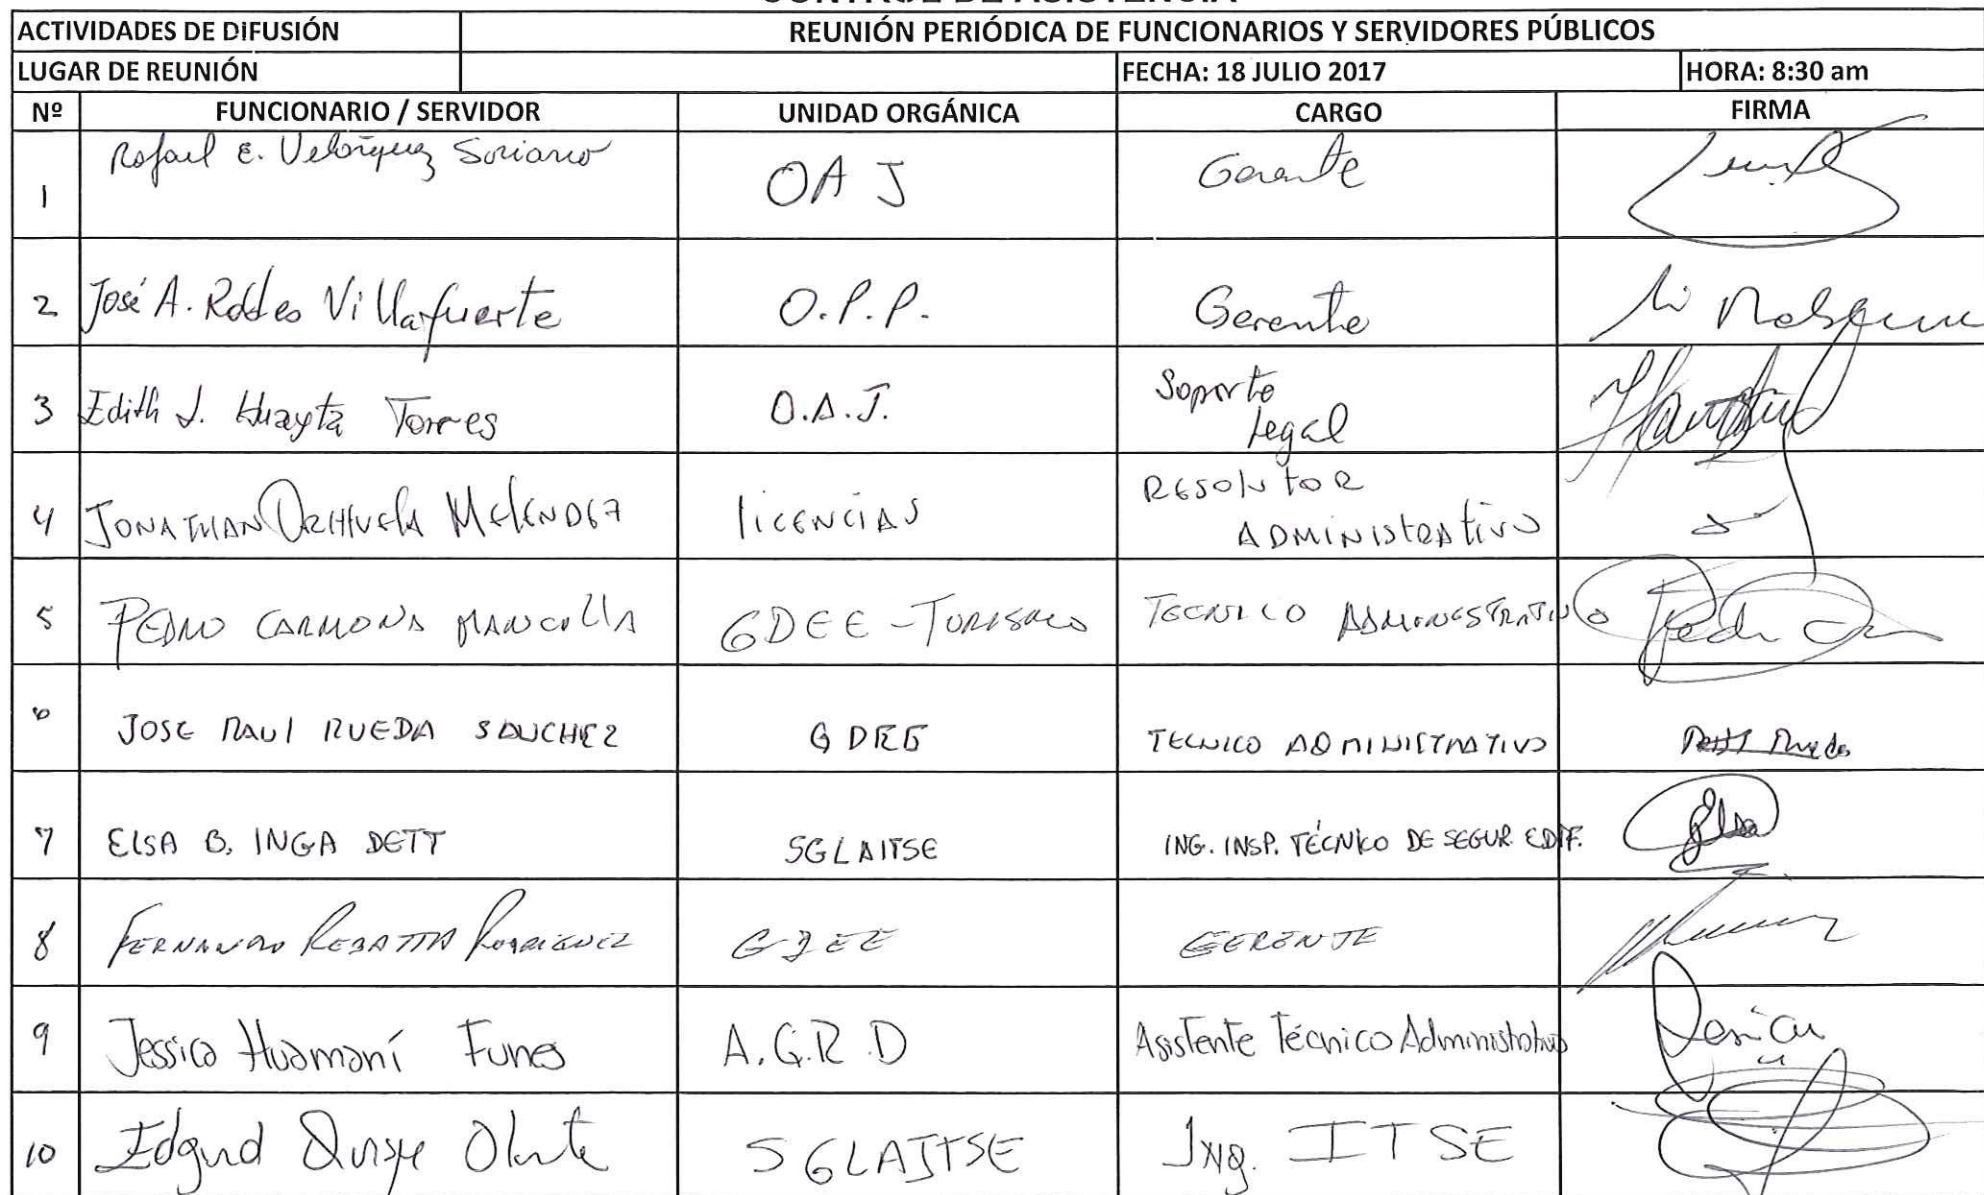 CONTROL DE ASISTENCIA
ACTIVIDADES DE DIFUSIÓN REUNIÓN PERIÓDICA DE FUNCIONARIOS Y SERVIDORES PÚBLICOS
LUGAR DE REUNIÓN FECHA: 18 JULIO 2017 HORA: 8:30 am
Nº FUNCIONARIO / SERVIDOR UNIDAD ORGÁNICA CARGO FIRMA
1 Rafael E. Velásquez Soriano OAJ Gerente
2 José A. Robles Villafuerte O.P.P. Gerente
3 Edith J. Huayta Torres O.A.J. Soporte
Legal
4 JONATHAN ORIHUELA MELENDEZ licENCIAS RESOLUTOR
ADMINISTRATIVO
5 PEDRO CARMONA MANCILLA GDEE - TURISMO TECNICO ADMINISTRATIVO
6 JOSE RAUL RUEDA SANCHEZ GDEE TECNICO ADMINISTRATIVO
7 ELSA B. INGA DETT SGLAITSE ING. INSP. TÉCNICO DE SEGUR. EDIF. Elsa
8 FERNANDO REBATTA RODRIGUEZ GDEE GERENTE
9 Jessica Huamaní Funes A.G.R.D Asistente Técnico Administrativo
10 Edgard Quispe Olarte SGLAITSE Ing. ITSE